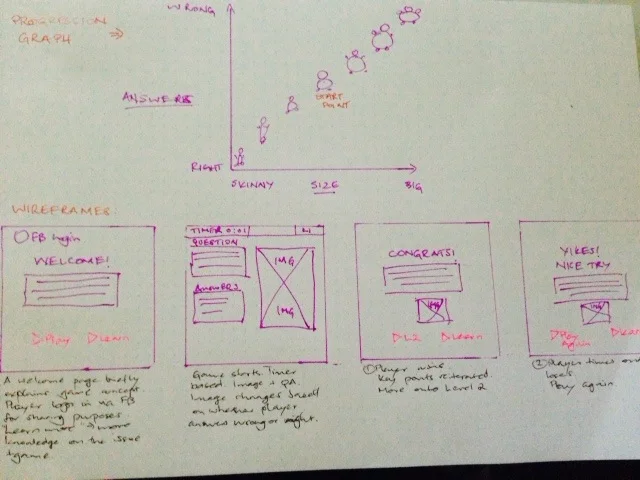 PROGRESSION
GRAPH
WRONG
ANSWERS
START
POINT
RIGHT
SKINNY
SIZE
BIG
WIREFRAMES
FB login
WELCOME!
Play
Learn
A welcome page briefly
explains game concept.
Player logs in via FB
for sharing purposes
"Learn more" → more
knowledge on the issue
+ game.
TIMER 0:01
L1
QUESTION
ANSWERS
IMG
IMG
Game starts. Timer
based. Image + QA.
Image changes based
on whether player
answers wrong or right.
CONGRATS!
IMG
L2
Learn
① Player wins.
Key points reiterated.
Move onto Level 2
YIKES!
NICE TRY
IMG
Play
again
Learn
② Player times out
loses.
Play again